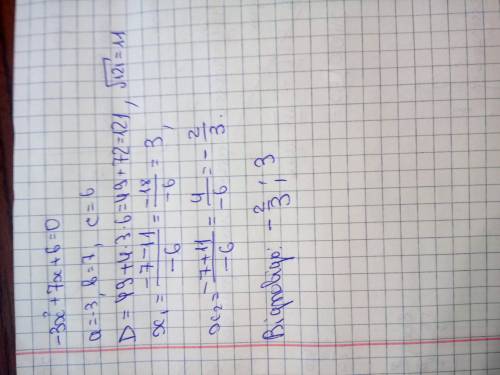 -3x²+7x+6=0
a=-3, b=7, c=6
D=49+4·3·6=49+72=121, √121=11
x₁=(-7-11)/(-6)=(-18)/(-6)=3,
x₂=(-7+11)/(-6)=4/(-6)=-2/3.
Відповідь: -2/3; 3